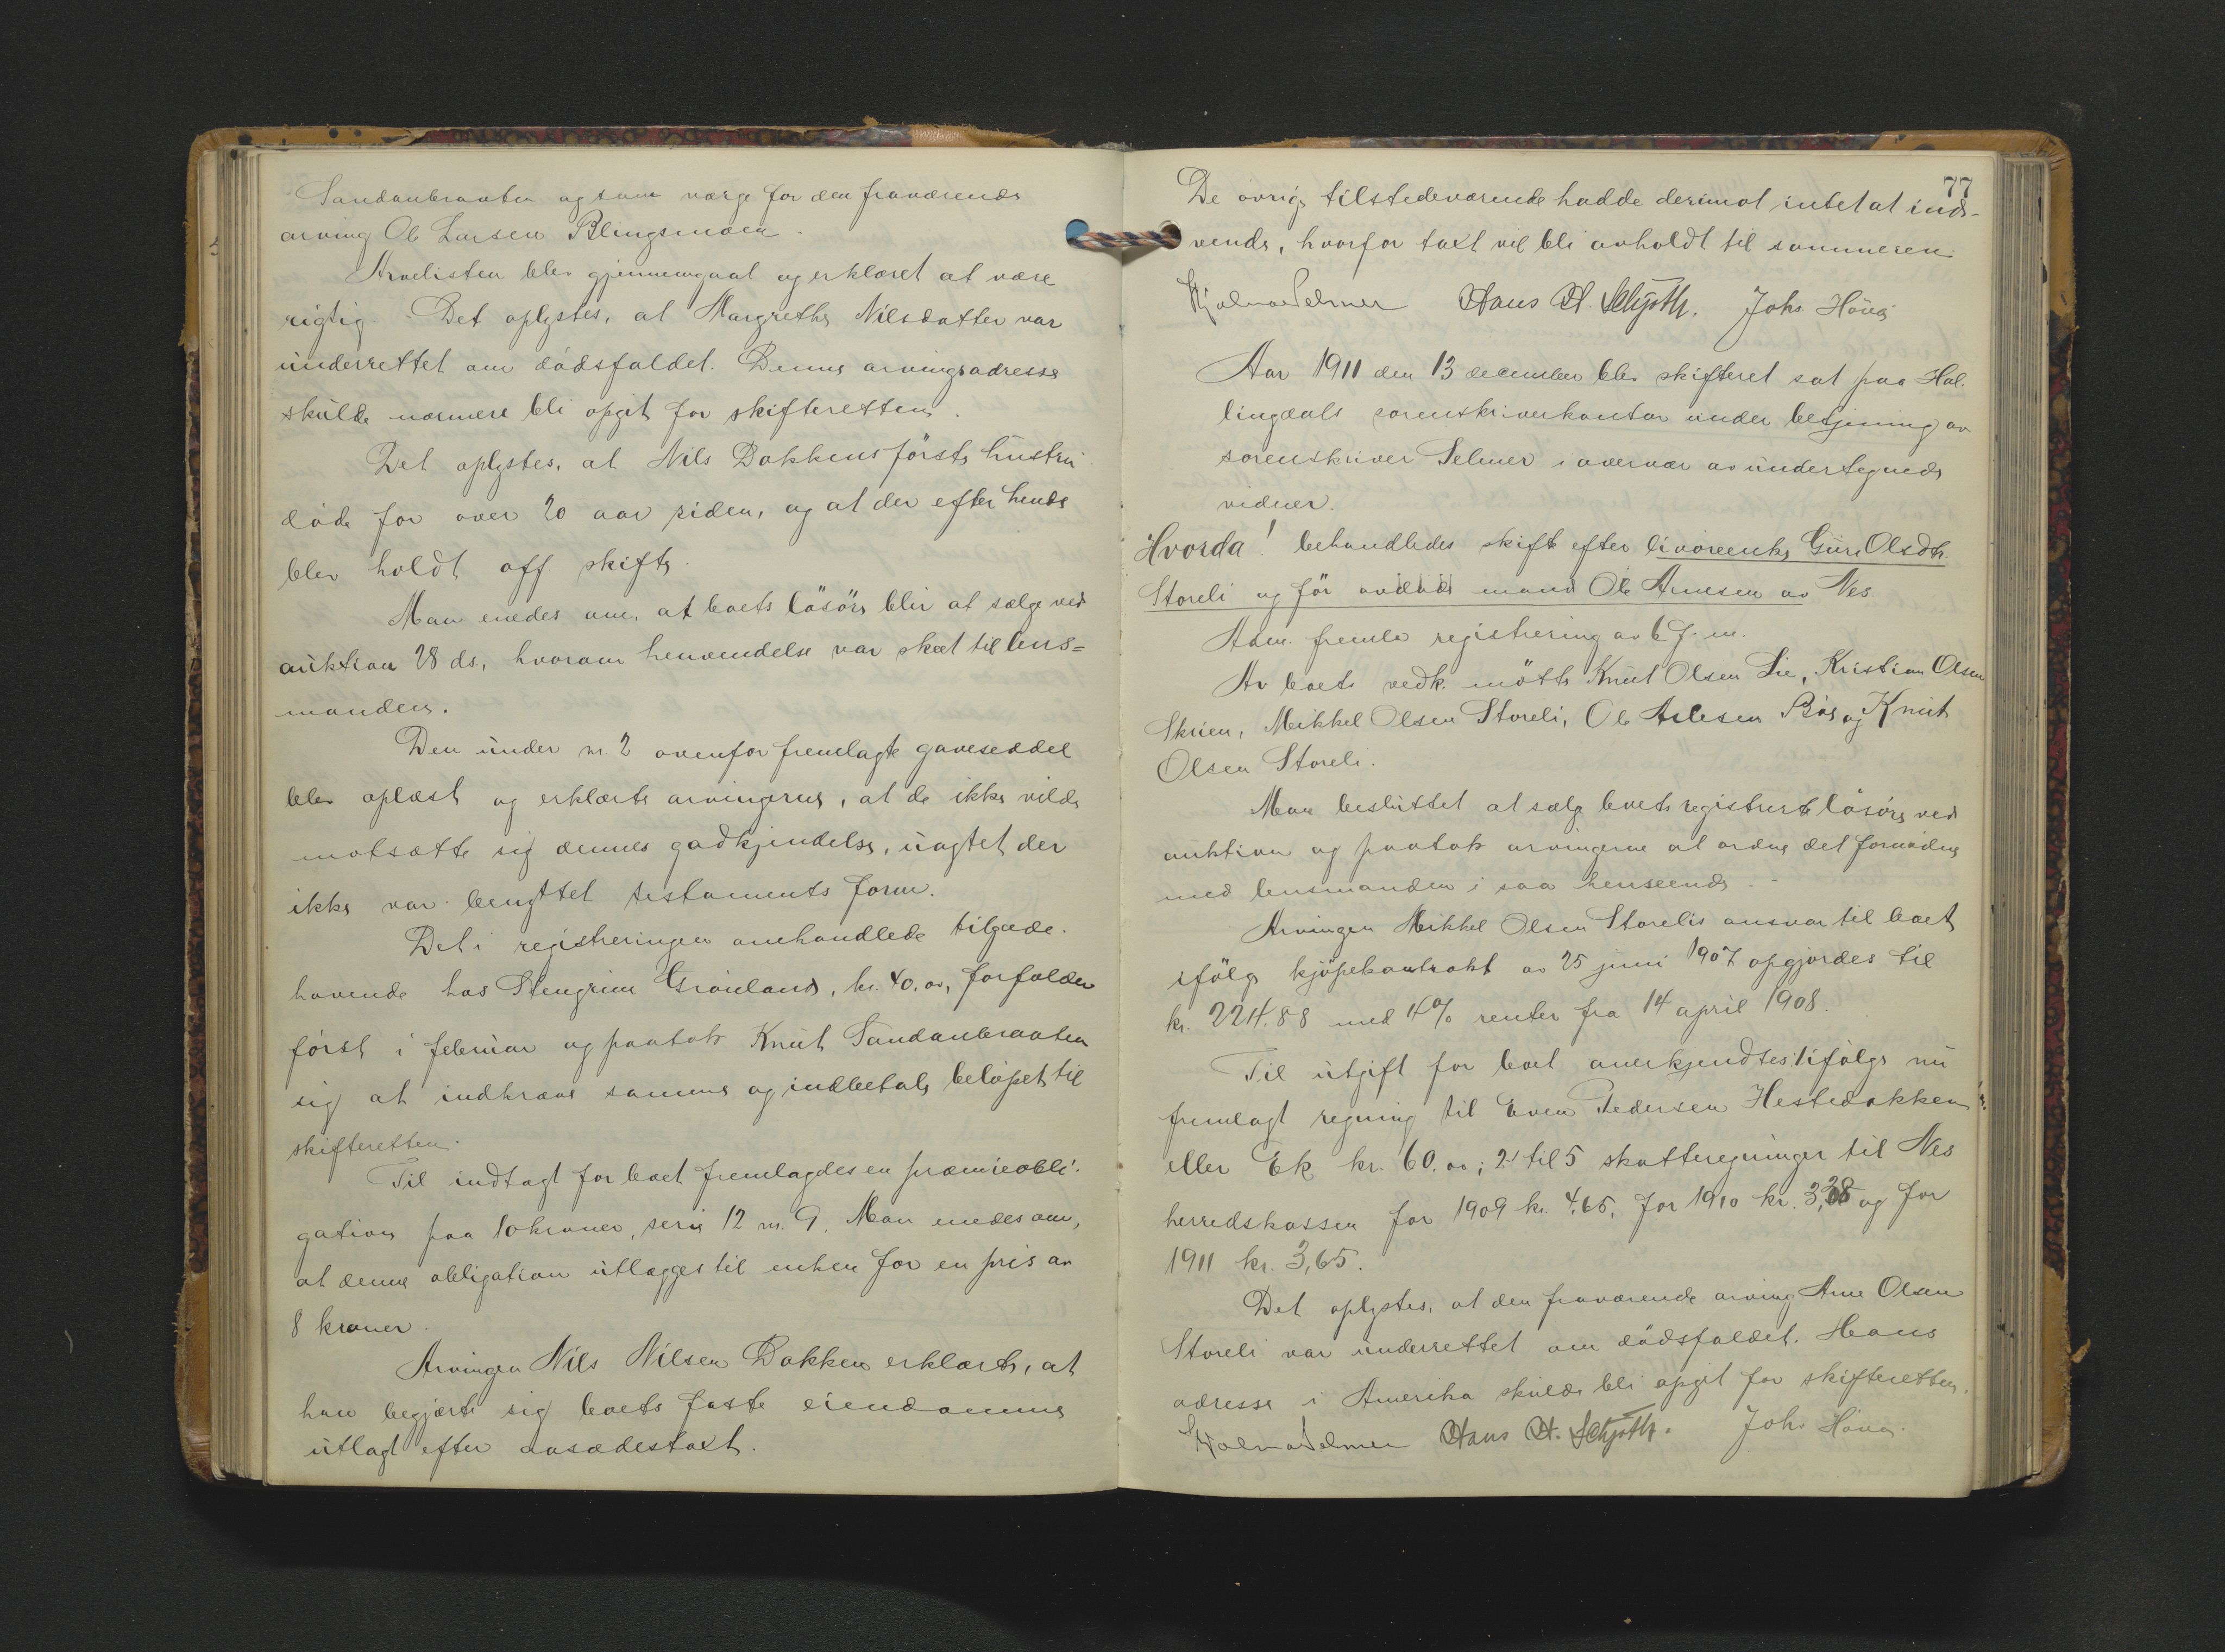 Sandanbraaten og som værge for den fraværende
arving Ole Larsen Blingsmoen.
Arvelisten blev gjennemgaat og erklæret at være
rigtig. Det oplystes, at Margrethe Nilsdatter var
underrettet om dödsfaldet. Denne arvings adresse
skulde nærmere bli opgit for skifteretten.
Det oplystes, at Nils Dokkens förste hustru
döde for over 20 aar siden, og at der efter hende
blev holdt off. skifte.
Man enedes om, at boets lösöre blir at sælge ved
auktion 28 ds., hvorom henvendelse var skeet til lens=
manden.
Den under nr. 2 ovenfor fremlagte gaveseddel
blev oplæst og erklærte arvingerne, at de ikke vilde
motsætte sig dennes godkjendelse, uagtet der
ikke var benyttet testaments form.
Det i registreringen omhandlede tilgode-
havende hos Stengrim Grönland, kr. 40.00, forfalder
först i februar og paatok Knut Sandanbraaten
sig at indkræve samme og indbetale belöpet til
skifteretten.
Til indtægt for boet fremlagdes en præmieobli-
gation paa 10 kroner, serie 12 nr. 9. Man enedes om,
at denne obligation utlægges til enken for en pris av
8 kroner.
Arvingen Nils Nilsen Dokken erklærte, at
han begjærte sig boets faste eiendomme
utlagt efter aasædestakt.
77
De övrige tilstedeværende hadde derimot intet at ind-
vende, hvorfor takt vil bli avholdt til sommeren.
Hjalmar Selmer Hans H. Schjøth. Johs. Höva
Aar 1911 den 13 december blev skifteret sat paa Hal-
lingdals sorenskriverkontor under betjening av
sorenskriver Selmer i overvær av undertegnede
vidner.
Hvorda! behandledes skifte efter livörenke Guri Olsdtr.
Storeli og för avdöde mand Ole Arnesen av Nes
Adm. fremla registrering av 6 f. m.
Av boets vedk. mötte Knut Olsen Lie, Kristian Olsen
Skrien, Mikkel Olsen Storeli, Ole Aslesen Bös og Knut
Olsen Storeli.
Man besluttet at sælge boets registrerte lösöre ved
auktion og paatok arvingerne at ordne det fornödne
med lensmanden i saa henseende.
Arvingen Mikkel Olsen Storelis ansvar til boet
ifölge kjöpekontrakt av 25 juni 1907 opgjordes til
kr. 2214.88 med 4% renter fra 14 april 1908.
Til utgift for boet anerkjendtes: 1 ifölge nu
fremlagt regning til Even Pedersen Hestedokken
eller Ek kr. 60.00; 2 til 5 skatteregninger til Nes
herredskasse for 1909 kr. 4,65, for 1910 kr. 3,38 og for
1911 kr. 3,65.
Det oplystes, at den fraværende arving Arne Olsen
Storeli var underrettet om dödsfaldet. Hans
adresse i Amerika skulde bli opgit for skifteretten.
Hjalmar Selmer Hans H. Schjøth. Johs. Höva.